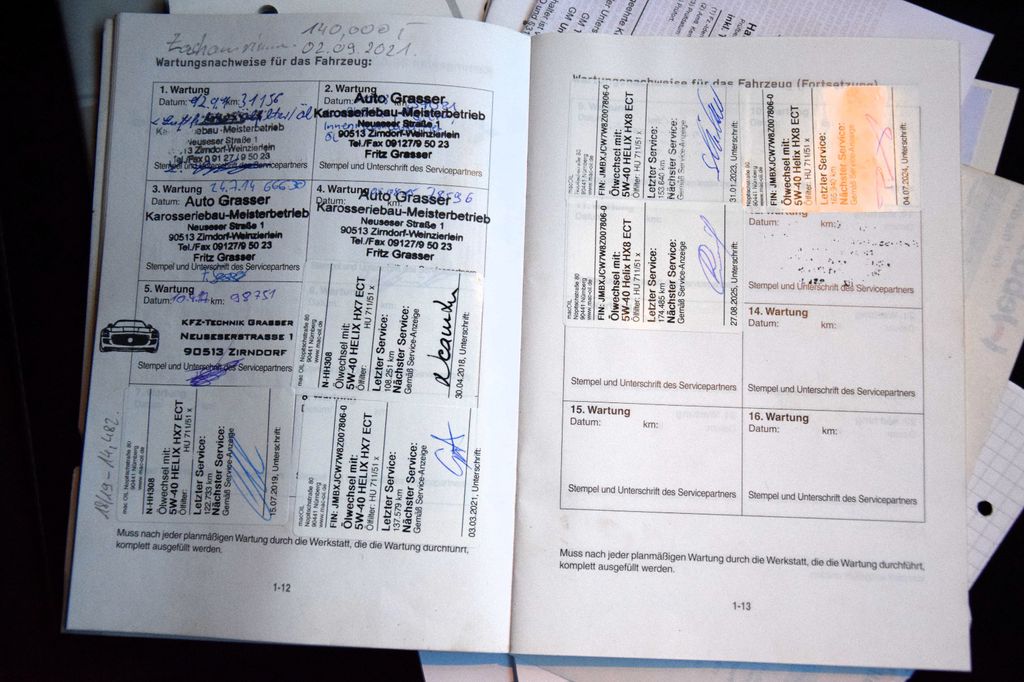 140,000
02.09.2021.
Wartungsnachweise für das Fahrzeug:
1. Wartung
Datum: km: 31156
Karosseriebau-Meisterbetrieb
Neuseser Straße 1
90513 Zirndorf-Weinzierlein
Tel./Fax 09127/9 50 23
Stempel und Unterschrift des Servicepartners
2. Wartung
Auto Grasser
Karosseriebau-Meisterbetrieb
Neuseser Straße 1
90513 Zirndorf-Weinzierlein
Tel./Fax 09127/9 50 23
Fritz Grasser
Stempel und Unterschrift des Servicepartners
3. Wartung
24.7.14 66630
Auto Grasser
Karosseriebau-Meisterbetrieb
Neuseser Straße 1
90513 Zirndorf-Weinzierlein
Tel./Fax 09127/9 50 23
Fritz Grasser
Stempel und Unterschrift des Servicepartners
4. Wartung
Auto Grasser
Karosseriebau-Meisterbetrieb
Neuseser Straße 1
90513 Zirndorf-Weinzierlein
Tel./Fax 09127/9 50 23
Fritz Grasser
5. Wartung
Datum: km: 98751
KFZ-TECHNIK GRASSER
NEUSESERSTRASSE 1
90513 ZIRNDORF
Stempel und Unterschrift des Servicepartners
mac OIL Nopitschstraße 80
90441 Nürnberg
www.mac-oil.de
N-HH308
Ölwechsel mit:
5W-40 HELIX HX7 ECT
Ölfilter: HU 711/51 x
Letzter Service:
108.251 km
Nächster Service:
Gemäß Service-Anzeige
30.04.2018, Unterschrift:
18/19 - 14,482.
mac OIL Nopitschstraße 80
90441 Nürnberg
www.mac-oil.de
N-HH308
Ölwechsel mit:
5W-40 HELIX HX7 ECT
Ölfilter: HU 711/51 x
Letzter Service:
122.733 km
Nächster Service:
Gemäß Service-Anzeige
15.07.2019, Unterschrift:
macOIL
Nopitschstraße 80
90441 Nürnberg
www.mac-oil.de
FIN: JMBXJCW7W8Z007806-0
Ölwechsel mit:
5W-40 HELIX HX7 ECT
Ölfilter: HU 711/51 x
Letzter Service:
137.579 km
Nächster Service:
Gemäß Service-Anzeige
03.03.2021, Unterschrift:
Muss nach jeder planmäßigen Wartung durch die Werkstatt, die die Wartung durchführt,
komplett ausgefüllt werden.
1-12
Wartungsnachweise für das Fahrzeug (Fortsetzung)
macOIL
Nopitschstraße 80
90441 Nürnberg
www.mac-oil.de
FIN: JMBXJCW7W8Z007806-0
Ölwechsel mit:
5W-40 Helix HX8 ECT
Ölfilter: HU 711/51 x
Letzter Service:
153.640 km
Nächster Service:
Gemäß Service-Anzeige
31.01.2023, Unterschrift:
macOIL
Nopitschstraße 80
90441 Nürnberg
www.mac-oil.de
FIN: JMBXJCW7W8Z007806-0
Ölwechsel mit:
5W-40 Helix HX8 ECT
Ölfilter: HU 711/51 x
Letzter Service:
Nächster Service:
Gemäß Service-Anzeige
04.07.2024, Unterschrift:
macOIL
Nopitschstraße 80
90441 Nürnberg
www.mac-oil.de
FIN: JMBXJCW7W8Z007806-0
Ölwechsel mit:
5W-40 Helix HX8 ECT
Ölfilter: HU 711/51 x
Letzter Service:
174.485 km
Nächster Service:
Gemäß Service-Anzeige
27.08.2025, Unterschrift:
km:
Stempel und Unterschrift des Servicepartners
Stempel und Unterschrift des Servicepartners
14. Wartung
Datum: km:
Stempel und Unterschrift des Servicepartners
15. Wartung
Datum: km:
Stempel und Unterschrift des Servicepartners
16. Wartung
Datum: km:
Stempel und Unterschrift des Servicepartners
Muss nach jeder planmäßigen Wartung durch die Werkstatt, die die Wartung durchführt,
komplett ausgefüllt werden.
1-13